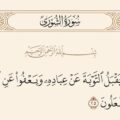 سُورَةُ الشُّورَىٰ
بِسْمِ اللَّهِ الرَّحْمَٰنِ الرَّحِيمِ
يَقْبَلُ التَّوْبَةَ عَنْ عِبَادِهِ وَيَعْفُوا عَنِ
٢٥